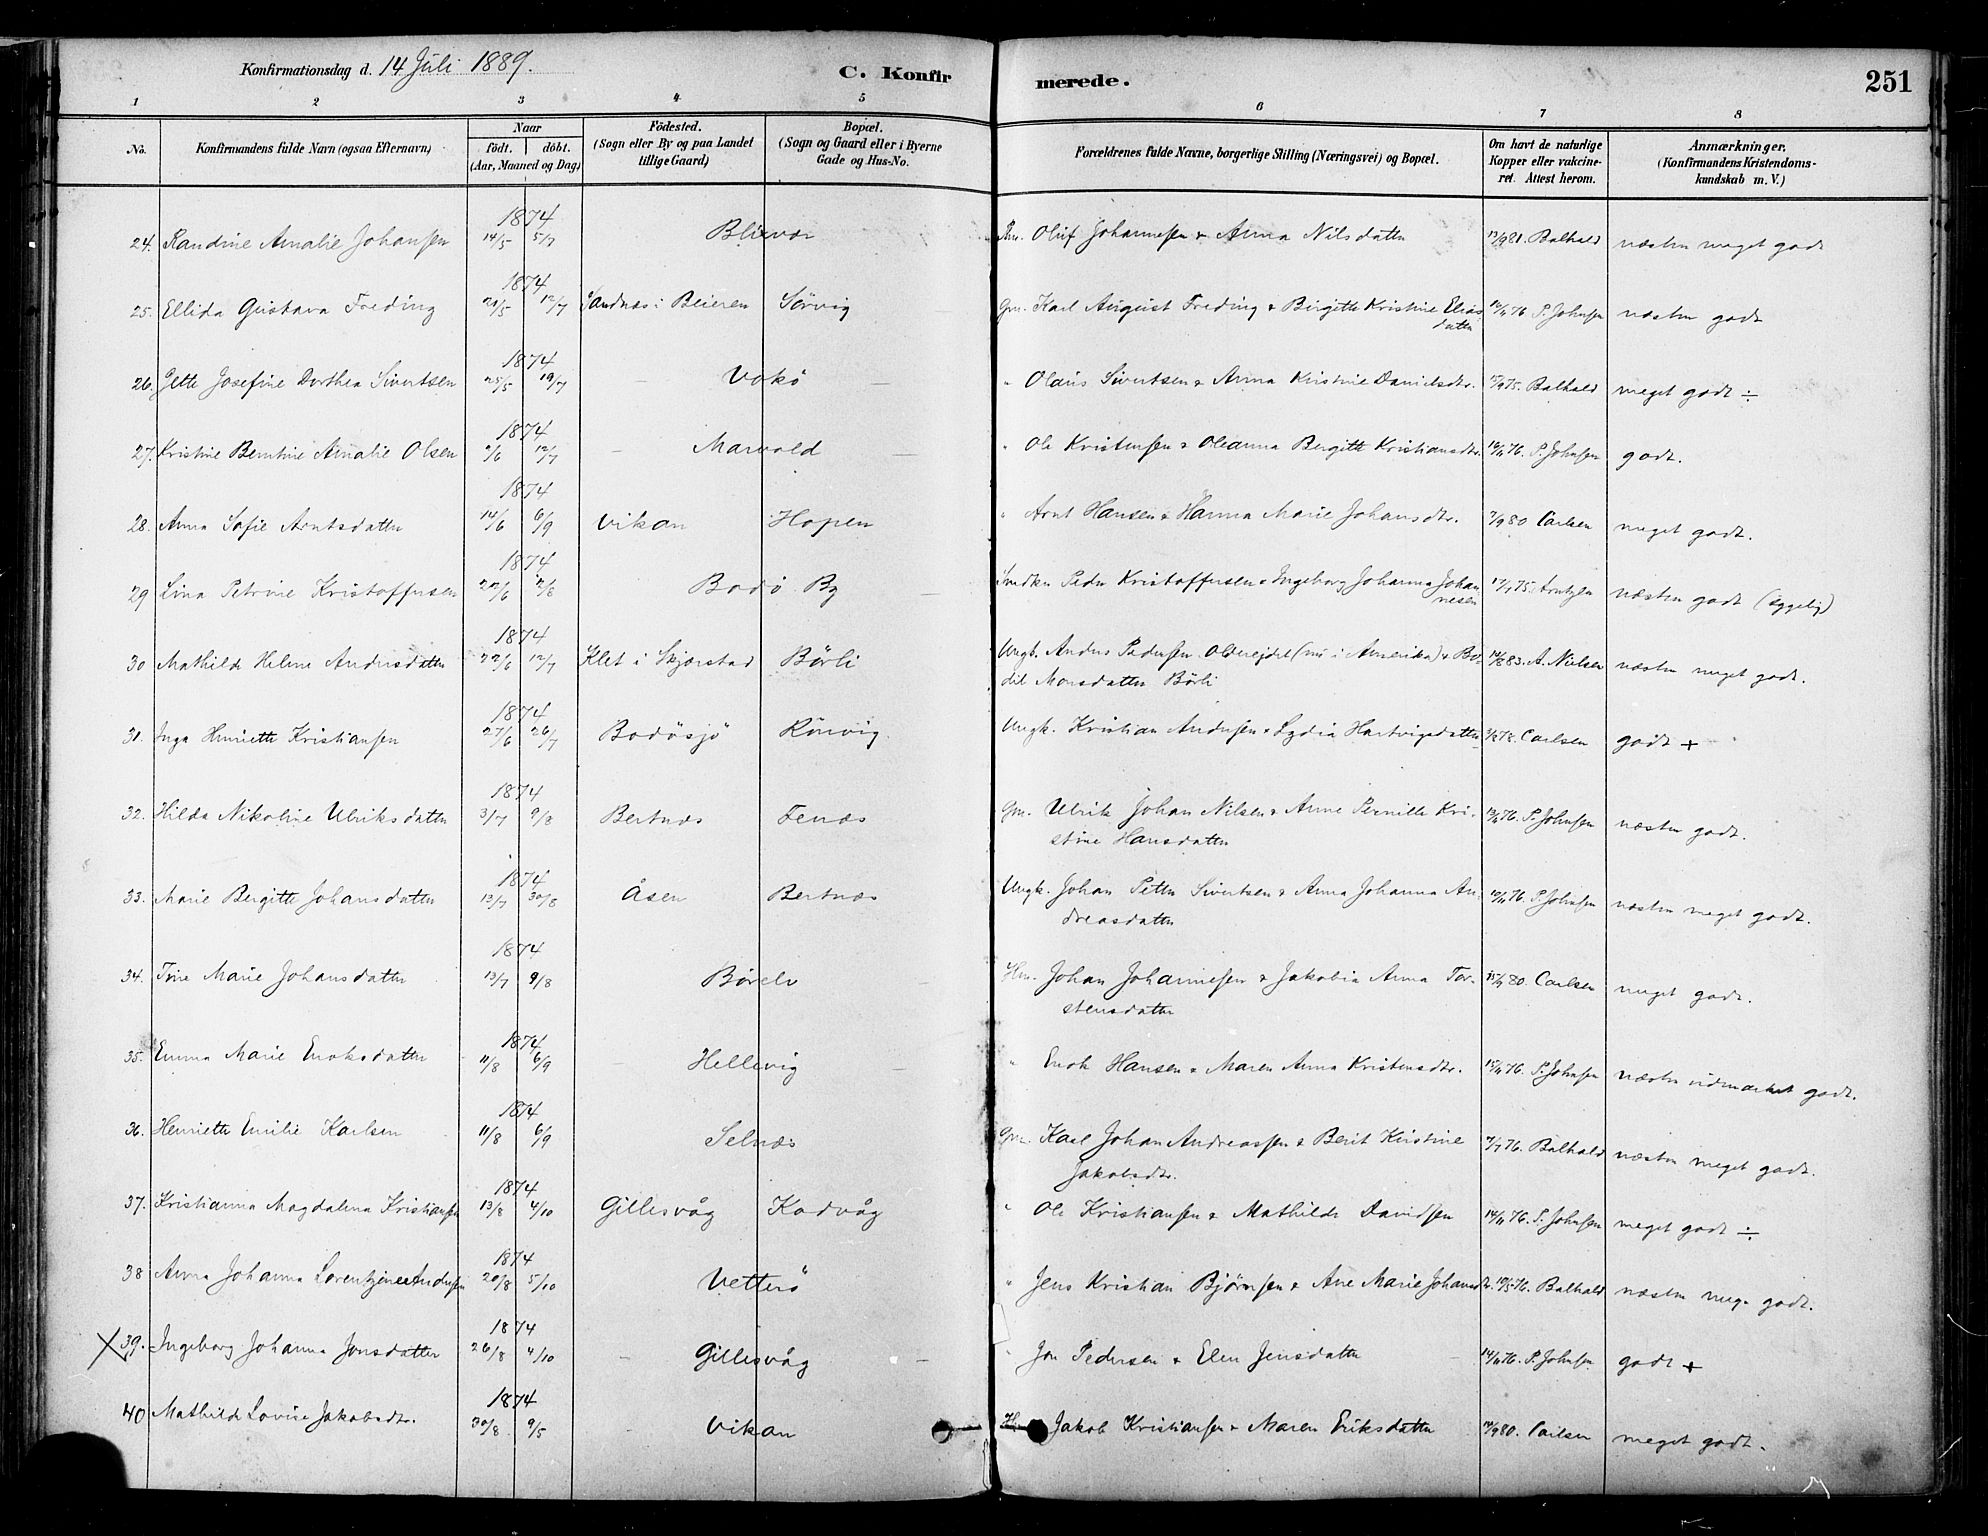 Konfirmationsdag d. 14 Juli 1889.
C. Konfir
merede.
251
1 2 3 4 5 6 7 8
No.
Konfirmandens fulde Navn (ogsaa Efternavn)
Naar
födt. döbt.
(Aar, Maaned og Dag)
Födested.
(Sogn eller By og paa Landet tillige Gaard)
Bopæl.
(Sogn og Gaard eller i Byerne Gade og Hus-No.
Forældrenes fulde Navne, borgerlige Stilling (Næringsvei) og Bopæl.
Om havt de naturlige Kopper eller vakcineret. Attest herom.
Anmærkninger.
(Konfirmandens Kristendomskundskab m. V.)
24. Randine Amalie Johansen 1874 14/5 5/7 Blixvær Oluf Johannesen & Anna Nilsdatter 13/9 81. Balhald næsten meget godt
25. Ellida Gustava Freding 1874 12/7 Sandnæs i Beieren Sörvig Gm. Karl August Freding & Birgitte Kristine Elias
datter 12/11 76 P. Johnsen næsten godt
26. Jette Josefine Dorthea Sivertsen 1874 25/5 19/7 – Vokö – " Olaus Sivertsen & Anna Kristine Danielsdtr. 75. Balhald meget godt ÷
27. Kristine Berntine Amalie Olsen 1874 12/7 – Marvold – " Ole Kristensen & Oleanna Bergitte Kristiansdtr. 12/11 76. P. Johnsen godt.
28. Anna Sofie Arntsdatter 1874 14/6 6/9 Vikan Hopen " Arnt Hansen & Hanna Marie Johansdtr. 7/9 80 Carlsen meget godt.
29 Lina Petrine Kristoffersen 1874 22/6 2/8 Bodö By – Peder Kristoffersen & Ingeborg Johanna Johan
nesen 75. Arntzen næsten godt (sygelig)
30 Mathilde Helene Andersdatter 1874 22/6 12/7 Klet i Skjerstad Börli Ungk. Anders Pedersen Oldereidet (nu i Amerika) & Bo-
dil Monsdatter Börli 83. A. Nielsen næsten meget godt.
31. Inga Henriette Kristiansen 1874 27/6 26/7 Bodösjö Rönvig. Ungk. Kristian Andersen & Lydia Hartvigsdatter 78. Carlsen godt +
32. Hilda Nikoline Ulriksdatter 1874 3/7 9/8 Bertnæs Fenæs Gm. Ulrik Johan Nilsen & Anne Pernille Kri-
stine Hansdatter 12/11 76. P. Johnsen næsten godt.
33. Marie Bergitte Johansdatter 1874 13/7 30/8 Åsen Bertnæs Ungk. Johan Petter Sivertsen & Anna Johanna An-
dreasdatter 12/11 76. P. Johnsen næsten meget godt.
34. Tine Marie Johansdatter 1874 13/7 9/8 Börelv – Hm. Johan Johannesen & Jakobia Anna Tor-
stensdatter 80. Carlsen meget godt.
35. Emma Marie Enoksdatter 1874 11/8 6/9 – Hellevig " Enok Hansen & Maren Anna Kristensdtr. 15/11 76. P. Johnsen næsten udmærket godt.
36. Henriette Emilie Karlsen 1874 11/8 6/9 Selnæs Gm. Karl Johan Andreassen & Berit Kristine
Jakobsdtr. 76. Balhald næsten meget godt.
37. Kristianna Magdalena Kristiansen 1874 13/8 4/10 Gillesvåg Kodvåg " Ole Kristiansen & Mathilde Davidsen 14/11 76. P. Johnsen meget godt ÷
38 Anna Johanna Lorentzine Andersen 1874 20/8 5/10 Vetterö " Jens Kristian Björnsen & Ane Marie Johansdtr. 76. Balhald næsten meg. godt.
X 39. Ingeborg Johanna Jonsdatter 1874 26/8 4/10 – Gillesvåg – " Jon Pedersen & Elen Jensdatter 14/11 76. P. Johnsen godt +
40 Mathilde Lovise Jakobsdtr. 1874 30/8 9/5 Vikan Jakob Kristiansen & Maren Eriksdatter 80. Carlsen meget godt.